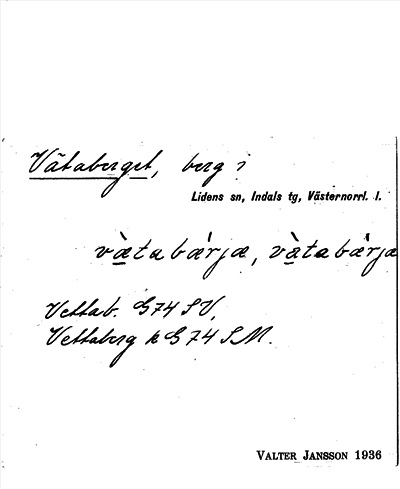 Vätaberget, berg i
Lidens sn, Indals tg, Västernorrl. l.
væ̀tabárjæ, væ̀tabárja
Vettab. G74 SV,
Vettaberg k G74 SM.
VALTER JANSSON 1936